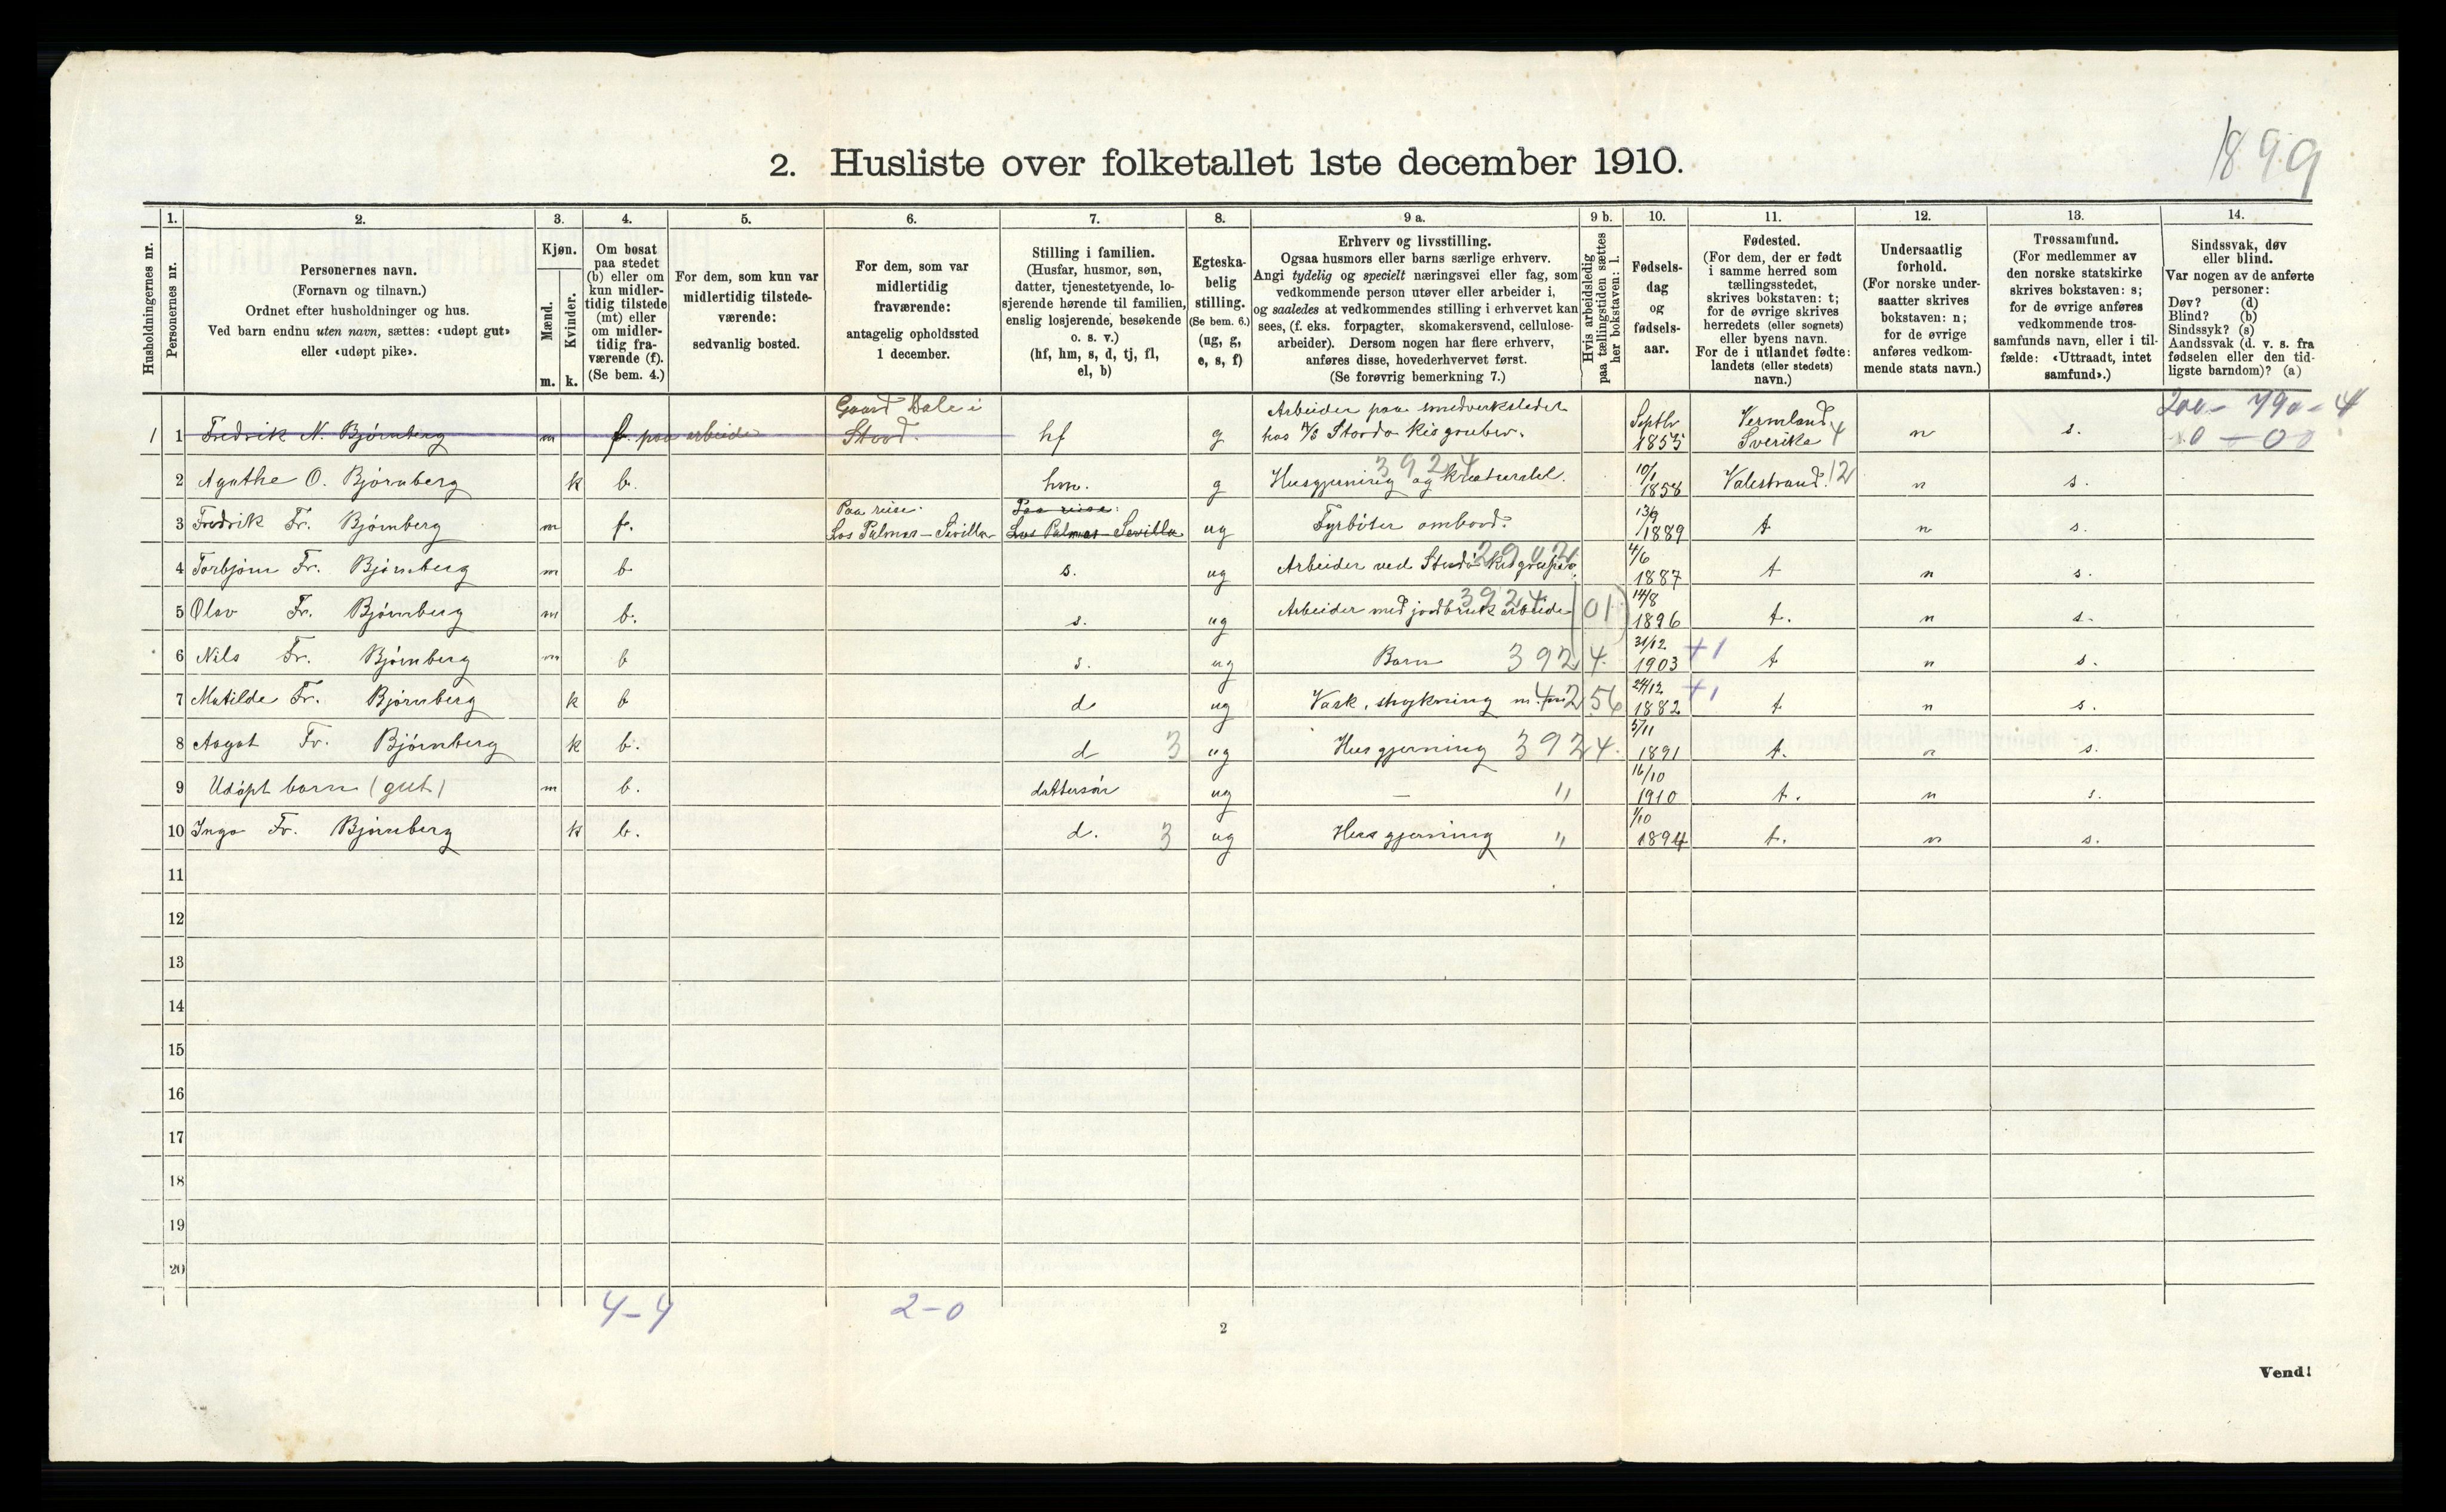 1899
2. Husliste over folketallet 1ste december 1910.
Husholdningernes nr.
1.
Personernes nr.
2.
Personernes navn.
(Fornavn og tilnavn.)
Ordnet efter husholdninger og hus.
Ved barn endnu uten navn, sættes: «udøpt gut»
eller «udøpt pike».
3.
Kjøn.
Mænd.
Kvinder.
m. k.
4.
Om bosat
paa stedet
(b) eller om
kun midler-
tidig tilstede
(mt) eller
om midler-
tidig fra-
værende (f).
(Se bem. 4.)
5.
For dem, som kun var
midlertidig tilstede-
værende:
sedvanlig bosted.
6.
For dem, som var
midlertidig
fraværende:
antagelig opholdssted
1 december.
7.
Stilling i familien.
(Husfar, husmor, søn,
datter, tjenestetyende, lo-
sjerende hørende til familien,
enslig losjerende, besøkende
o. s. v.)
(hf, hm, s, d, tj, fl,
el, b)
8.
Egteska-
belig
stilling.
(Se bem. 6.)
(ug, g,
e, s, f)
9 a.
Erhverv og livsstilling.
Ogsaa husmors eller barns særlige erhverv.
Angi tydelig og specielt næringsvei eller fag, som
vedkommende person utøver eller arbeider i,
og saaledes at vedkommendes stilling i erhvervet kan
sees, (f. eks. forpagter, skomakersvend, cellulose-
arbeider). Dersom nogen har flere erhverv,
anføres disse, hovederhvervet først.
(Se forøvrig bemerkning 7.)
9 b.
Hvis arbeidsledig
paa tællingstiden sættes
her bokstaven: l.
10.
Fødsels-
dag
og
fødsels-
aar.
11.
Fødested.
(For dem, der er født
i samme herred som
tællingsstedet,
skrives bokstaven: t;
for de øvrige skrives
herredets (eller sognets)
eller byens navn.
For de i utlandet fødte:
landets (eller stedets)
navn.)
12.
Undersaatlig
forhold.
(For norske under-
saatter skrives
bokstaven: n;
for de øvrige
anføres vedkom-
mende stats navn.)
13.
Trossamfund.
(For medlemmer av
den norske statskirke
skrives bokstaven: s;
for de øvrige anføres
vedkommende tros-
samfunds navn, eller i til-
fælde: «Uttraadt, intet
samfund».)
14.
Sindssvak, døv
eller blind.
Var nogen av de anførte
personer:
Døv? (d)
Blind? (b)
Sindssyk? (s)
Aandssvak (d. v. s. fra
fødselen eller den tid-
ligste barndom)? (a)
200 - 790 - 4
0 - 00
1 1 Fredrik N. Bjørnberg m f. paa arbeide Gaard Dale i Stord. hf g Arbeider paa smedverkstedet hos A/S Stordø Kisgruber. Septbr 1855 Vermland Sverika 4 n s.
2 Agathe O. Bjørnberg k b. hm. g Husgjerning og kreaturstel. 3924 10/1 1858 Valestrand. 12 n s.
3 Fredrik Fr. Bjørnberg m f. Paa reise. Las Palmas - Sevilla Paa reise: Las Palmas - Sevilla ug Fyrbøter ombord. 13/9 1889 t n s.
4 Torbjørn Fr. Bjørnberg m b. s. ug Arbeider ved Stordø Kisgruber. 4/6 1887 t n s.
5 Olav Fr. Bjørnberg m b. s. ug Arbeider med jordbruk arbeide 3924 (01) 14/8 1896 t. n s.
6 Nils Fr. Bjørnberg m b s. ug Barn 3924. 31/12 1903 +1 t n s.
7 Matilde Fr. Bjørnberg k b d ug Vask, strykning m. m. 4256 24/12 1882 +1 t n s.
8 Aagot Fr. Bjørnberg k b. d 3 ug Husgjerning 3924. 5/11 1891 t. n s.
9 Udøpt barn (gut) m b. dattersøn ug - " 16/10 1910 t. n s.
10 Inga Fr. Bjørnberg k b. d. 3 ug Husgjerning " 1/10 1894 t. n s.
11
12
13
14
15
16
17
18
19
20
4-4 2-0
2
Vend!